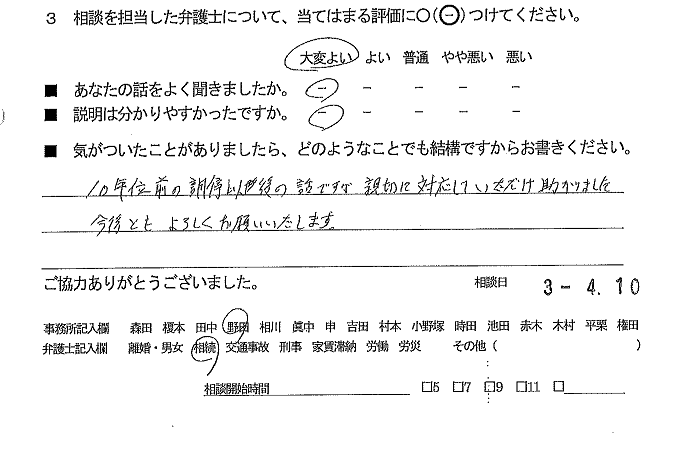 3 相談を担当した弁護士について、当てはまる評価に○(㊀)つけてください。
大変よい よい 普通 やや悪い 悪い
■ あなたの話をよく聞きましたか。 － － － － －
■ 説明は分かりやすかったですか。 － － － － －
■ 気がついたことがありましたら、どのようなことでも結構ですからお書きください。
10年位前の調停以後の話ですが 親切に対応していただけ助かりました
今後とも よろしくお願いいたします。
ご協力ありがとうございました。 相談日 3－4.10
事務所記入欄 森田 榎本 田中 野田 相川 眞中 申 吉田 村本 小野塚 時田 池田 赤木 木村 平栗 権田
弁護士記入欄 離婚・男女 相続 交通事故 刑事 家賃滞納 労働 労災 その他 ( )
相談開始時間 □5 □7 □9 □11 □